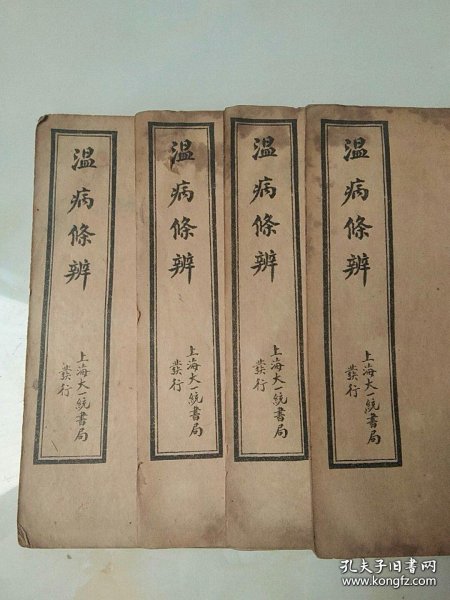 温病條辨
上海大一統書局
發行
温病條辨
上海大一統書局
發行
温病條辨
上海大一統書局
發行
温病條辨
上海大一統書局
發行
孔夫子旧书网
www.kongfz.com